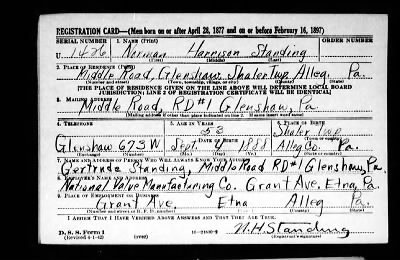 REGISTRATION CARD—(Men born on or after April 28, 1877 and on or before February 16, 1897)
SERIAL NUMBER 1. NAME (Print)
U 1426 Norman Harrison Standing
(First) (Middle) (Last)
2. PLACE OF RESIDENCE (Print)
Middle Road, Glenshaw, Shaler Twp. Alleg. Pa.
(Number and street) (Town, township, village, or city) (County) (State)
[THE PLACE OF RESIDENCE GIVEN ON THE LINE ABOVE WILL DETERMINE LOCAL BOARD
JURISDICTION; LINE 2 OF REGISTRATION CERTIFICATE WILL BE IDENTICAL]
3. MAILING ADDRESS
Middle Road, RD#1 Glenshaw, Pa
[Mailing address if other than place indicated on line 2. If same insert word same]
4. TELEPHONE 5. AGE IN YEARS 6. PLACE OF BIRTH
53 Shaler Twp
DATE OF BIRTH (Town or county)
Glenshaw 673W Sept. 4 1888 Alleg Co. Pa.
(Exchange) (Number) (Mo.) (Day) (Yr.) (State or country)
7. NAME AND ADDRESS OF PERSON WHO WILL ALWAYS KNOW YOUR ADDRESS
Gertrude Standing, Middle Road RD#1 Glenshaw, Pa.
8. EMPLOYER'S NAME AND ADDRESS
National Valve Manufacturing Co. Grant Ave, Etna, Pa.
9. PLACE OF EMPLOYMENT OR BUSINESS
Grant Ave. Etna Alleg Pa.
(Number and street or R. F. D. number) (Town) (County) (State)
I AFFIRM THAT I HAVE VERIFIED ABOVE ANSWERS AND THAT THEY ARE TRUE.
D. S. S. Form 1
(Revised 4-1-42) (over) N.H. Standing